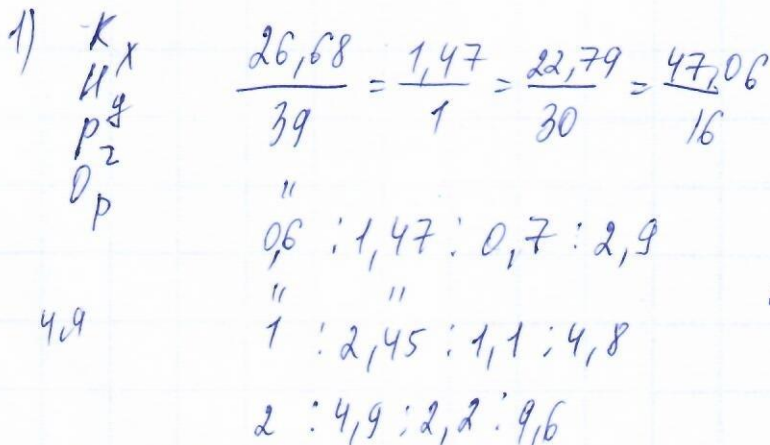 1) K x
H y
P z
O p
26,68 / 39 = 1,47 / 1 = 22,79 / 30 = 47,06 / 16
"
0,6 : 1,47 : 0,7 : 2,9
" "
4,9
1 : 2,45 : 1,1 : 4,8
2 : 4,9 : 2,2 : 9,6